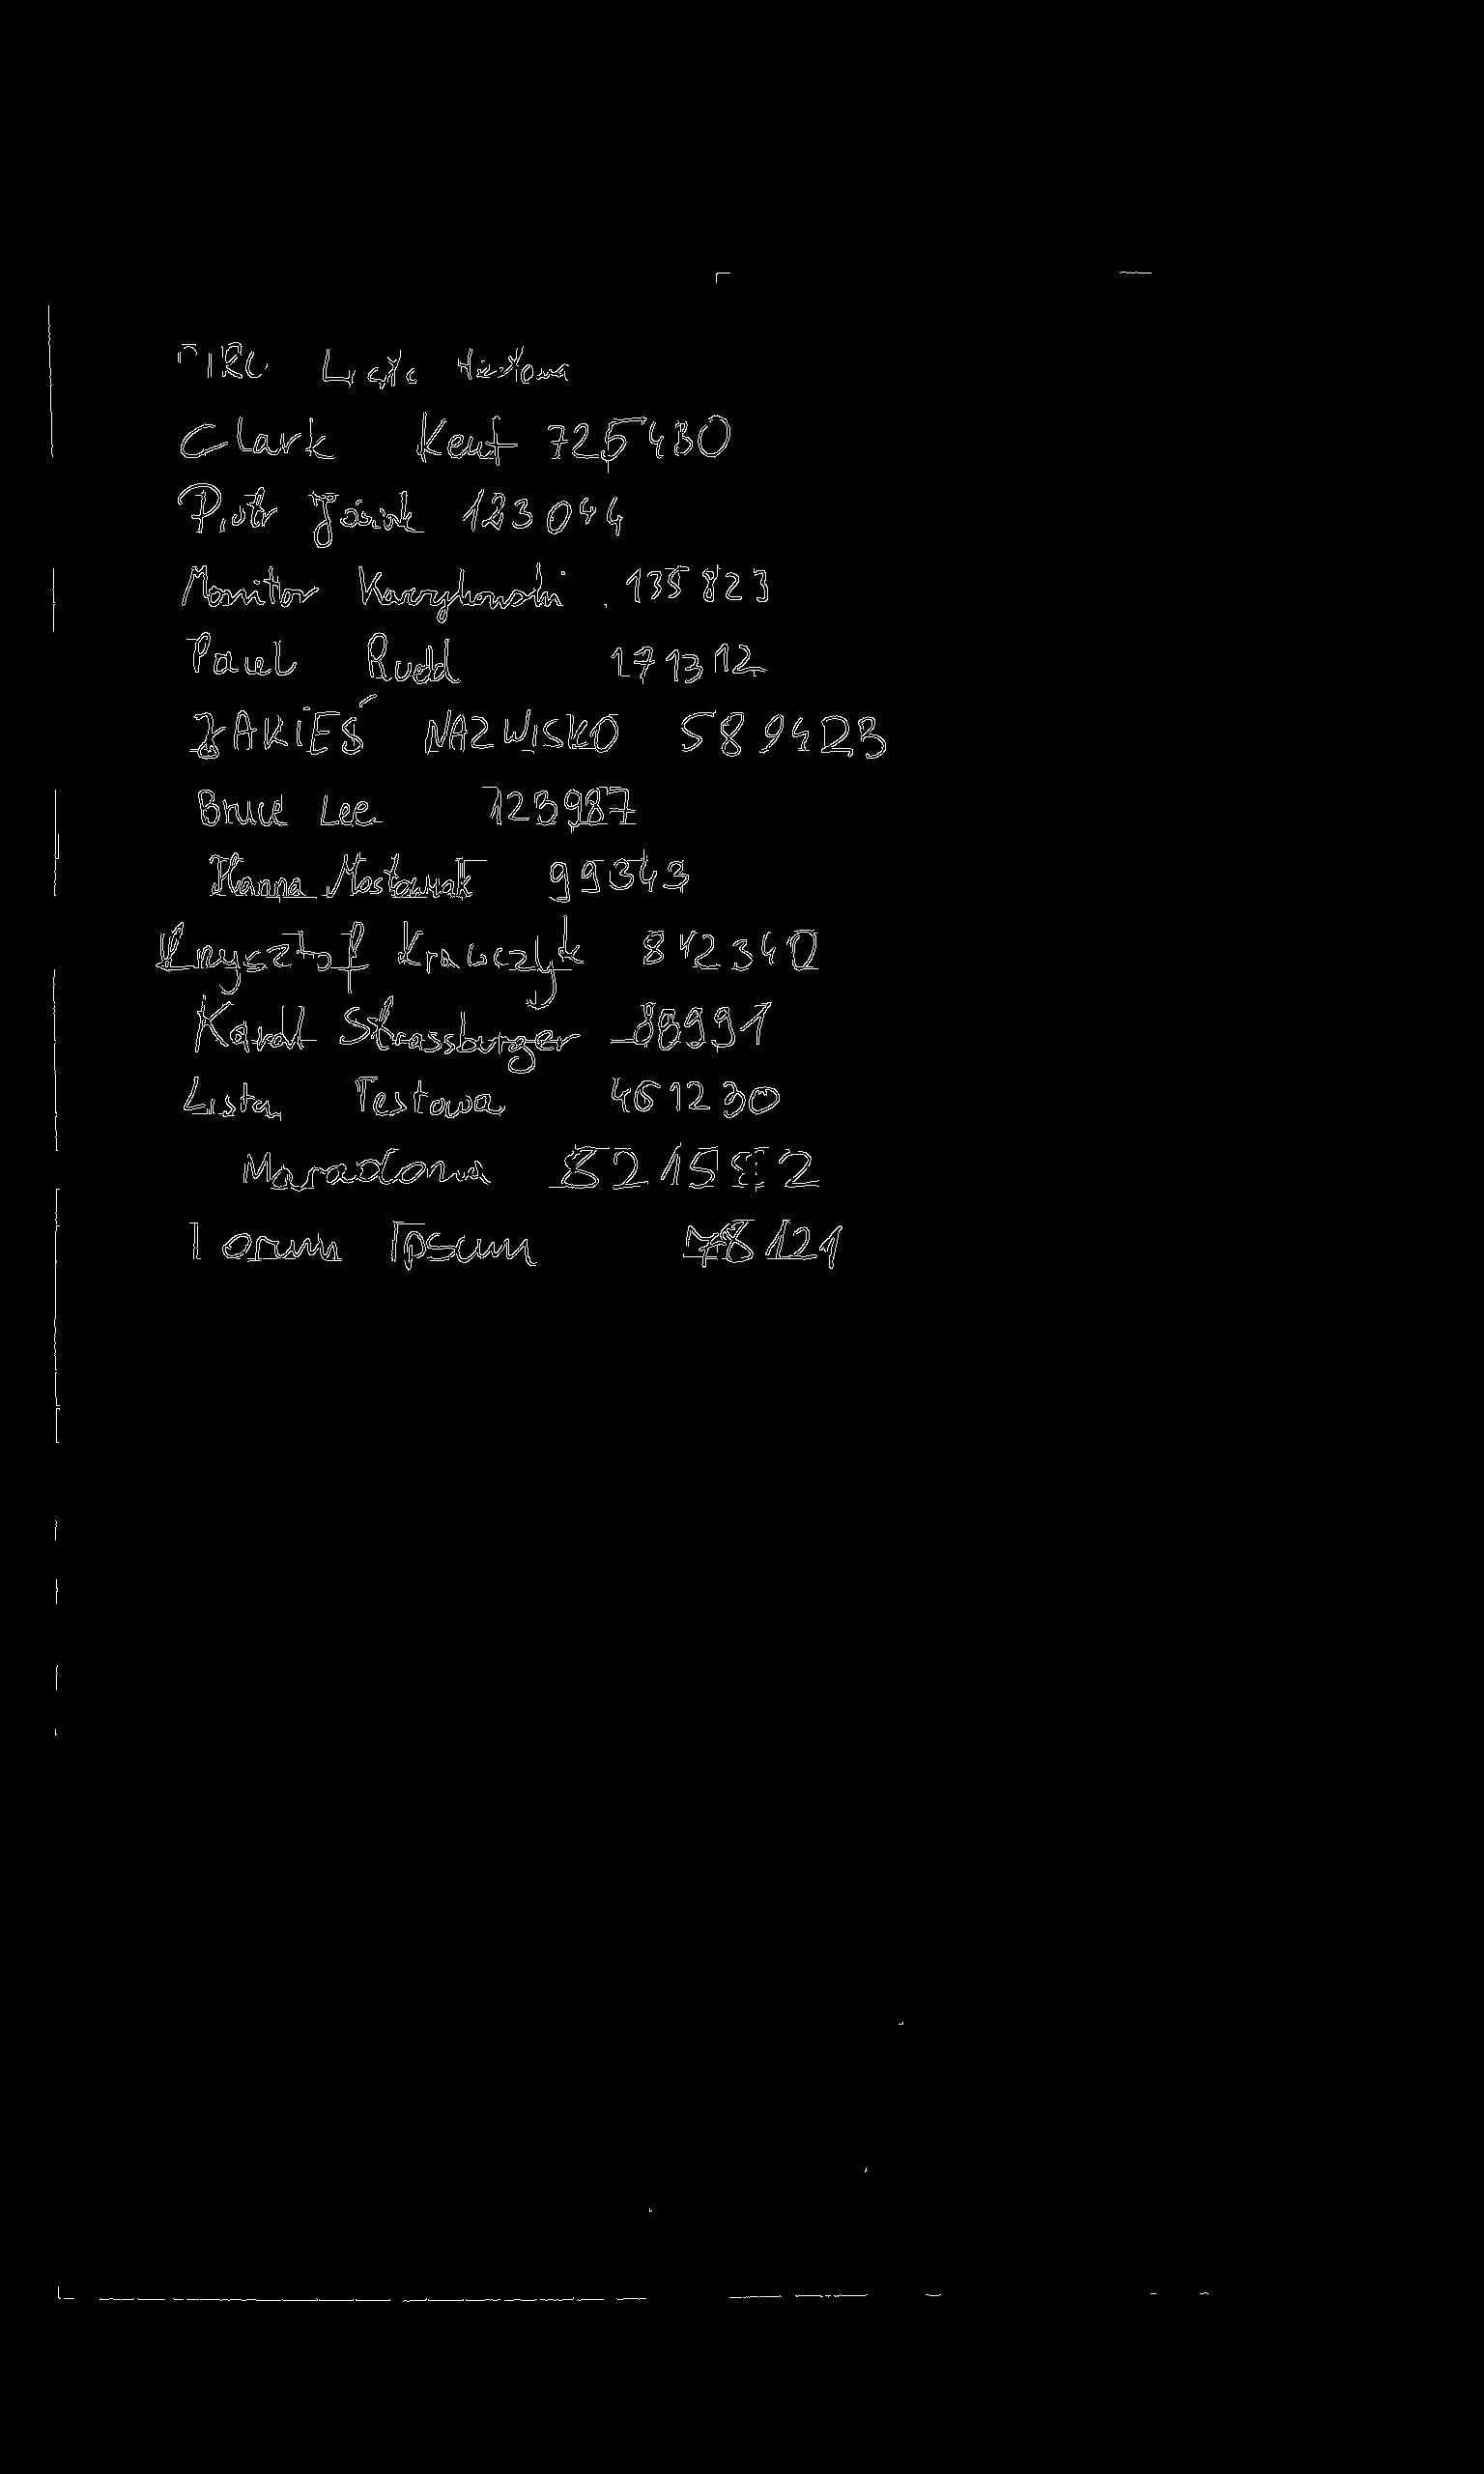 Clark Kent 725430
Piotr 123044
Monitor 135823
Paul Rudd 171312
JAKIEŚ NAZWISKO 589423
Bruce Lee 123987
Hanna Mostowiak 99343
Krysztof Krawczyk 842340
Karol Strassburger 88991
Lista Testowa 461230
Maradona 821582
Lorum Ipsum 78121